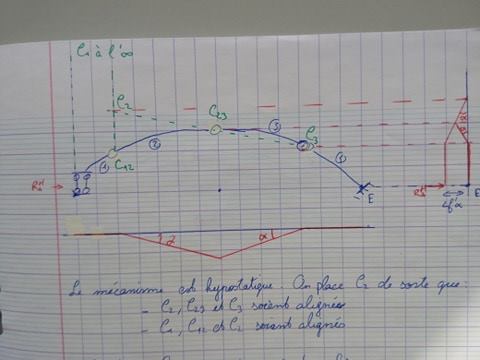 C₁ à l'∞
C₂
C₂₃
③
②
C₃
①
C₁₂
①
E
E
α
α
Le mécanisme est hypostatique. On place C₂ de sorte que :
- C₂, C₂₃ et C₃ soient alignés
- C₁, C₁₂ et C₂ soient alignés